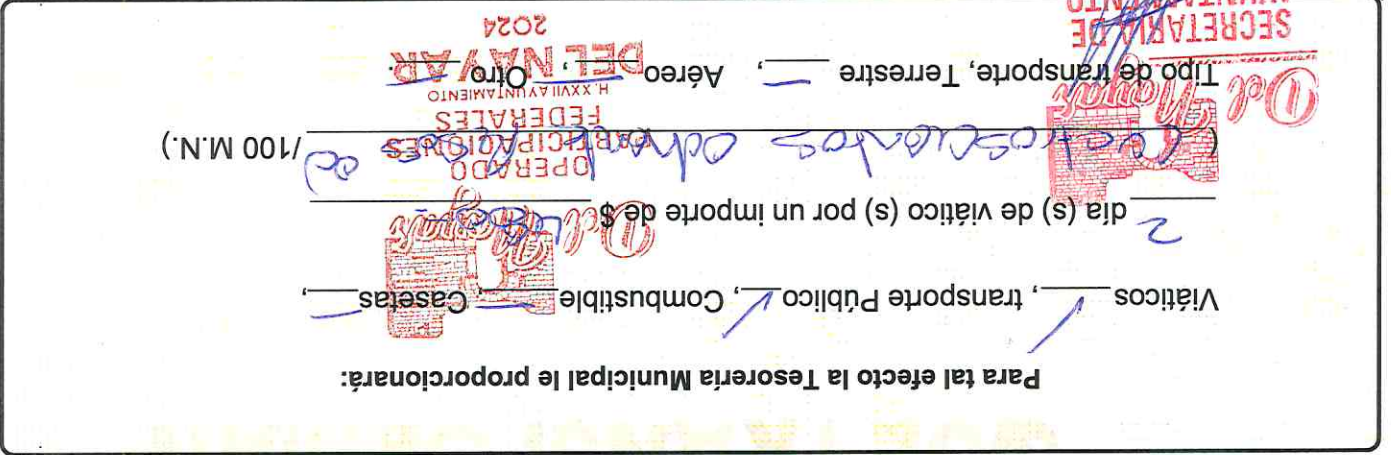 Para tal efecto la Tesorería Municipal le proporcionará:
Viáticos ✓, transporte Público ✓, Combustible —, Casetas —,
2 día (s) de viático (s) por un importe de $ 480
( Cuatroscientos ochenta pesos 00 /100 M.N.)
Tipo de transporte, Terrestre —, Aéreo —, Otro —.
Del Nayar
OPERADO
PARTICIPACIONES
FEDERALES
H. XXVII AYUNTAMIENTO
DEL NAYAR
2024
Del Nayar
SECRETARIA DE
AYUNTAMIENTO